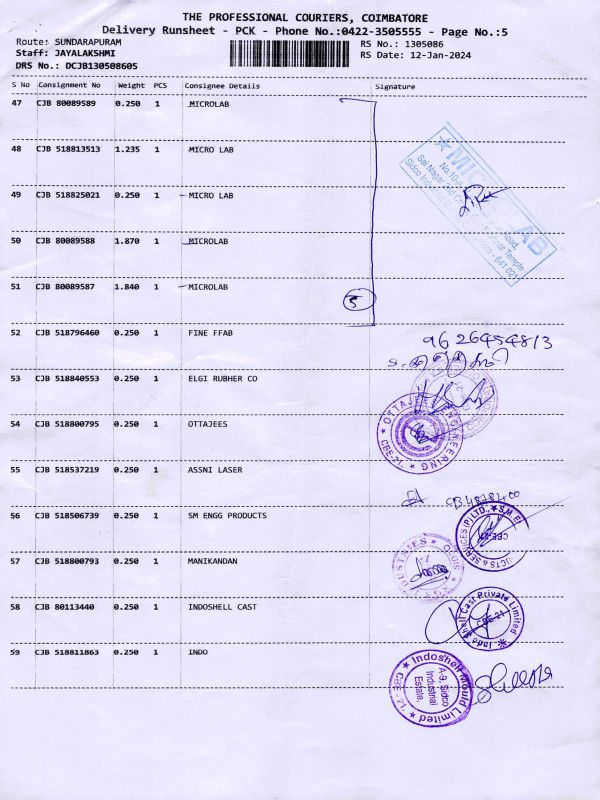 THE PROFESSIONAL COURIERS, COIMBATORE
Delivery Runsheet - PCK - Phone No.:0422-3505555 - Page No.:5
Route: SUNDARAPURAM
RS No.: 1305086
Staff: JAYALAKSHMI
RS Date: 12-Jan-2024
DRS No.: DCJB130508605
S No Consignment No Weight PCS Consignee Details Signature
47 CJB 80089589 0.250 1 MICROLAB
48 CJB 518813513 1.235 1 MICRO LAB
49 CJB 518825021 0.250 1 MICRO LAB
50 CJB 80089588 1.870 1 MICROLAB
51 CJB 80089587 1.840 1 MICROLAB
5
52 CJB 518796460 0.250 1 FINE FFAB
53 CJB 518840553 0.250 1 ELGI RUBHER CO
54 CJB 518800795 0.250 1 OTTAJEES
OTTAJEE ENGINEERING
CBE-21.
55 CJB 518537219 0.250 1 ASSNI LASER
56 CJB 518506739 0.250 1 SM ENGG PRODUCTS
CBE-21
57 CJB 518800793 0.250 1 MANIKANDAN
58 CJB 80113440 0.250 1 INDOSHELL CAST
Indo Shell Cast Private Limited
CBE-21
59 CJB 518811863 0.250 1 INDO
Indoshell Mould Limited
A-9, Sidco
Industrial
Estate,
CBE - 21.